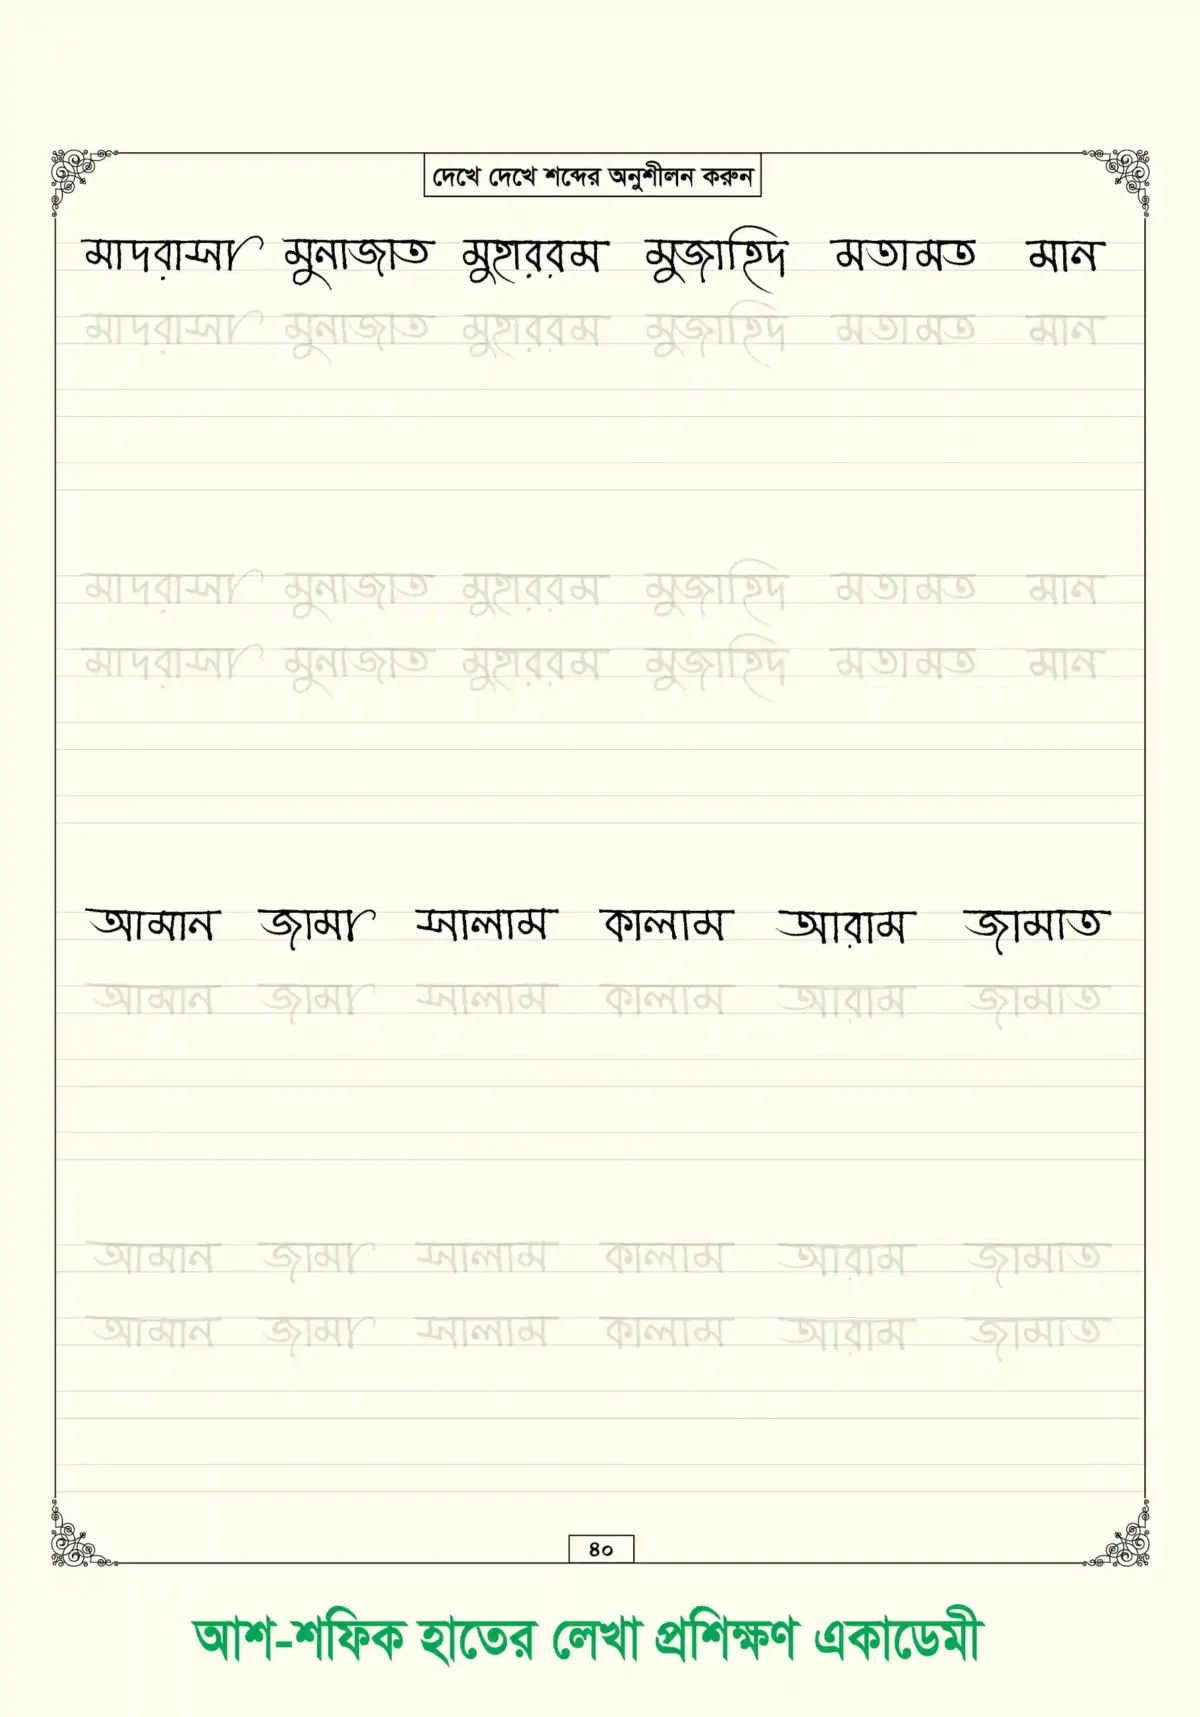 দেখে দেখে শব্দের অনুশীলন করুন
মাদরাসা মুনাজাত মুহাররম মুজাহিদ মতামত মান
মাদরাসা মুনাজাত মুহাররম মুজাহিদ মতামত মান
মাদরাসা মুনাজাত মুহাররম মুজাহিদ মতামত মান
মাদরাসা মুনাজাত মুহাররম মুজাহিদ মতামত মান
আমান জামা সালাম কালাম আরাম জামাত
আমান জামা সালাম কালাম আরাম জামাত
আমান জামা সালাম কালাম আরাম জামাত
আমান জামা সালাম কালাম আরাম জামাত
৪০
আশ-শফিক হাতের লেখা প্রশিক্ষণ একাডেমী